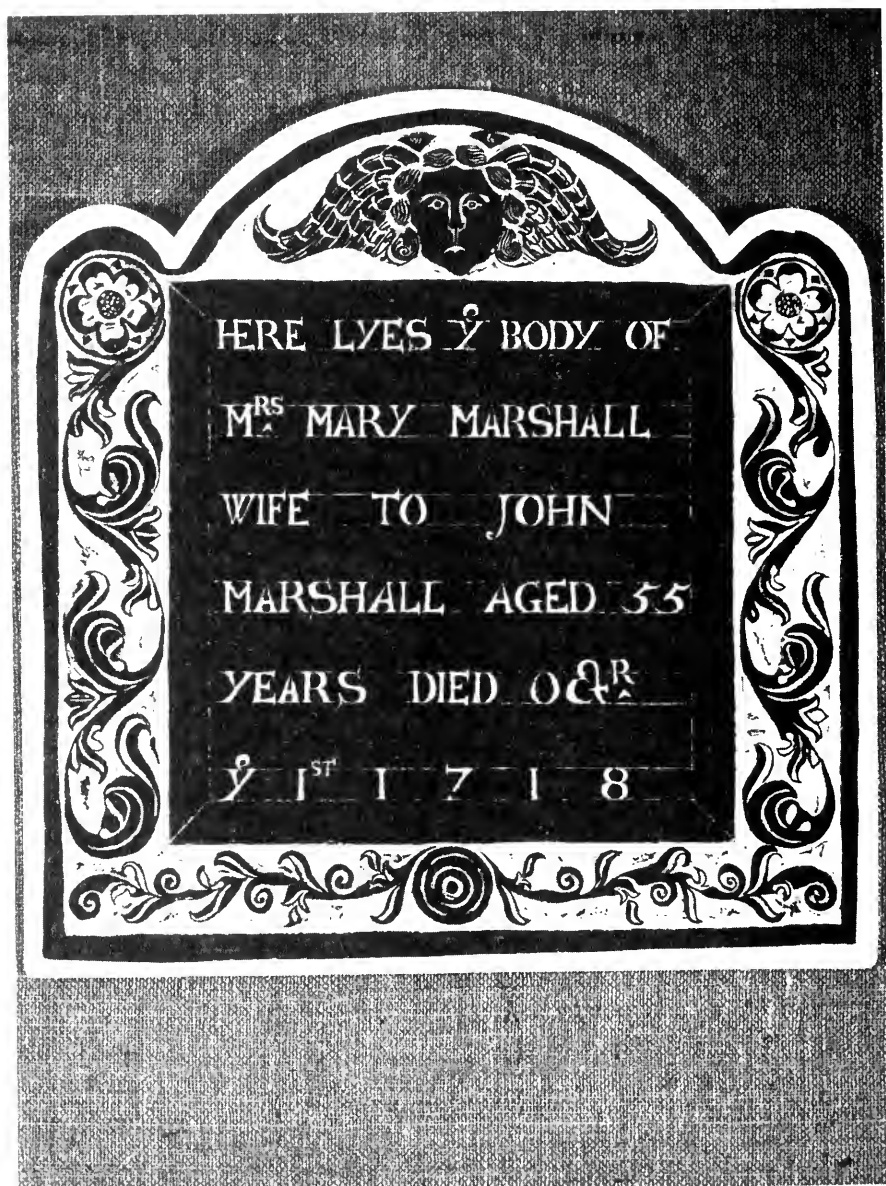 HERE LYES Yͤ BODY OF
Mᴿˢ MARY MARSHALL
WIFE TO JOHN
MARSHALL AGED 55
YEARS DIED OCTᴿ
Yͤ 1ˢᵀ 1 7 1 8